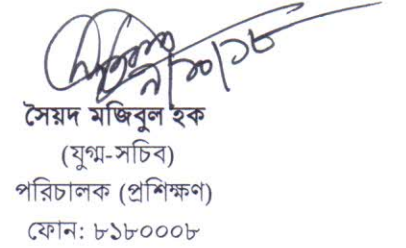 ৭/১০/১৮
সৈয়দ মজিবুল হক
(যুগ্ম-সচিব)
পরিচালক (প্রশিক্ষণ)
ফোন: ৮১৮০০০৮